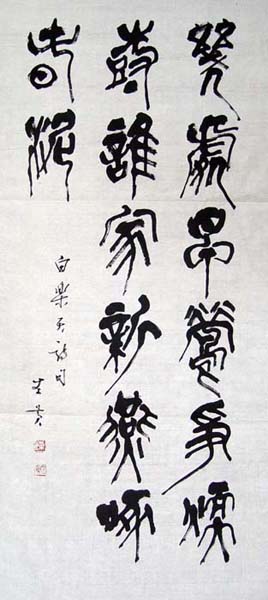 幾處早鶯爭暖
樹誰家新燕啄
春泥
白樂天詩句